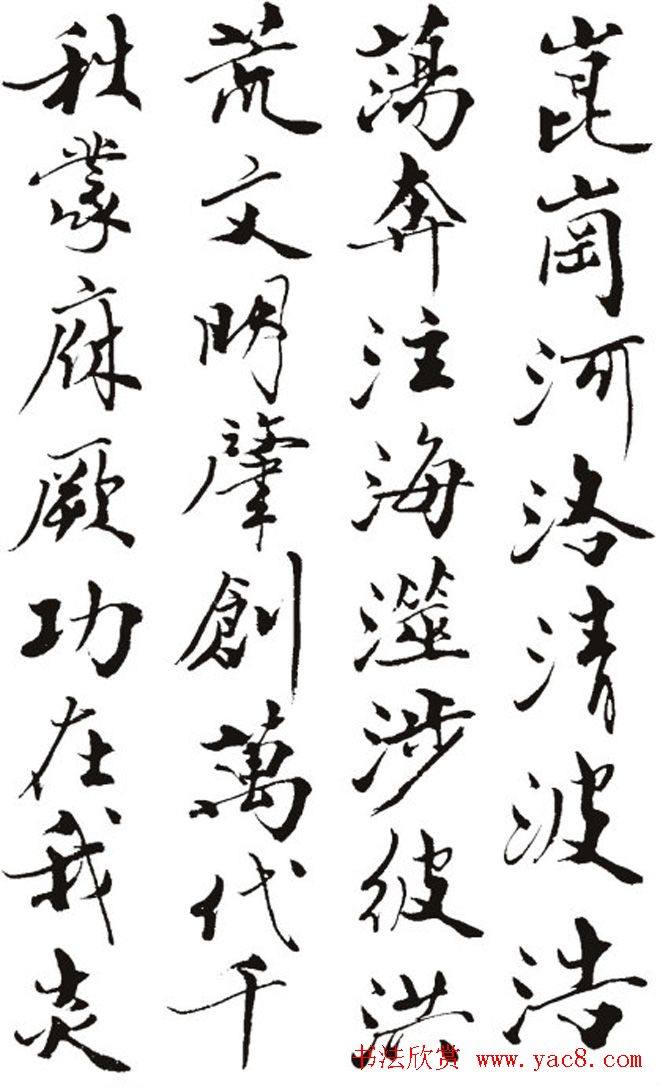 崑崗河洛清波浩
蕩奔注海澨涉彼洪
荒文明肇創萬代千
秋蒙庥厥功在我炎
书法欣赏 www.yac8.com